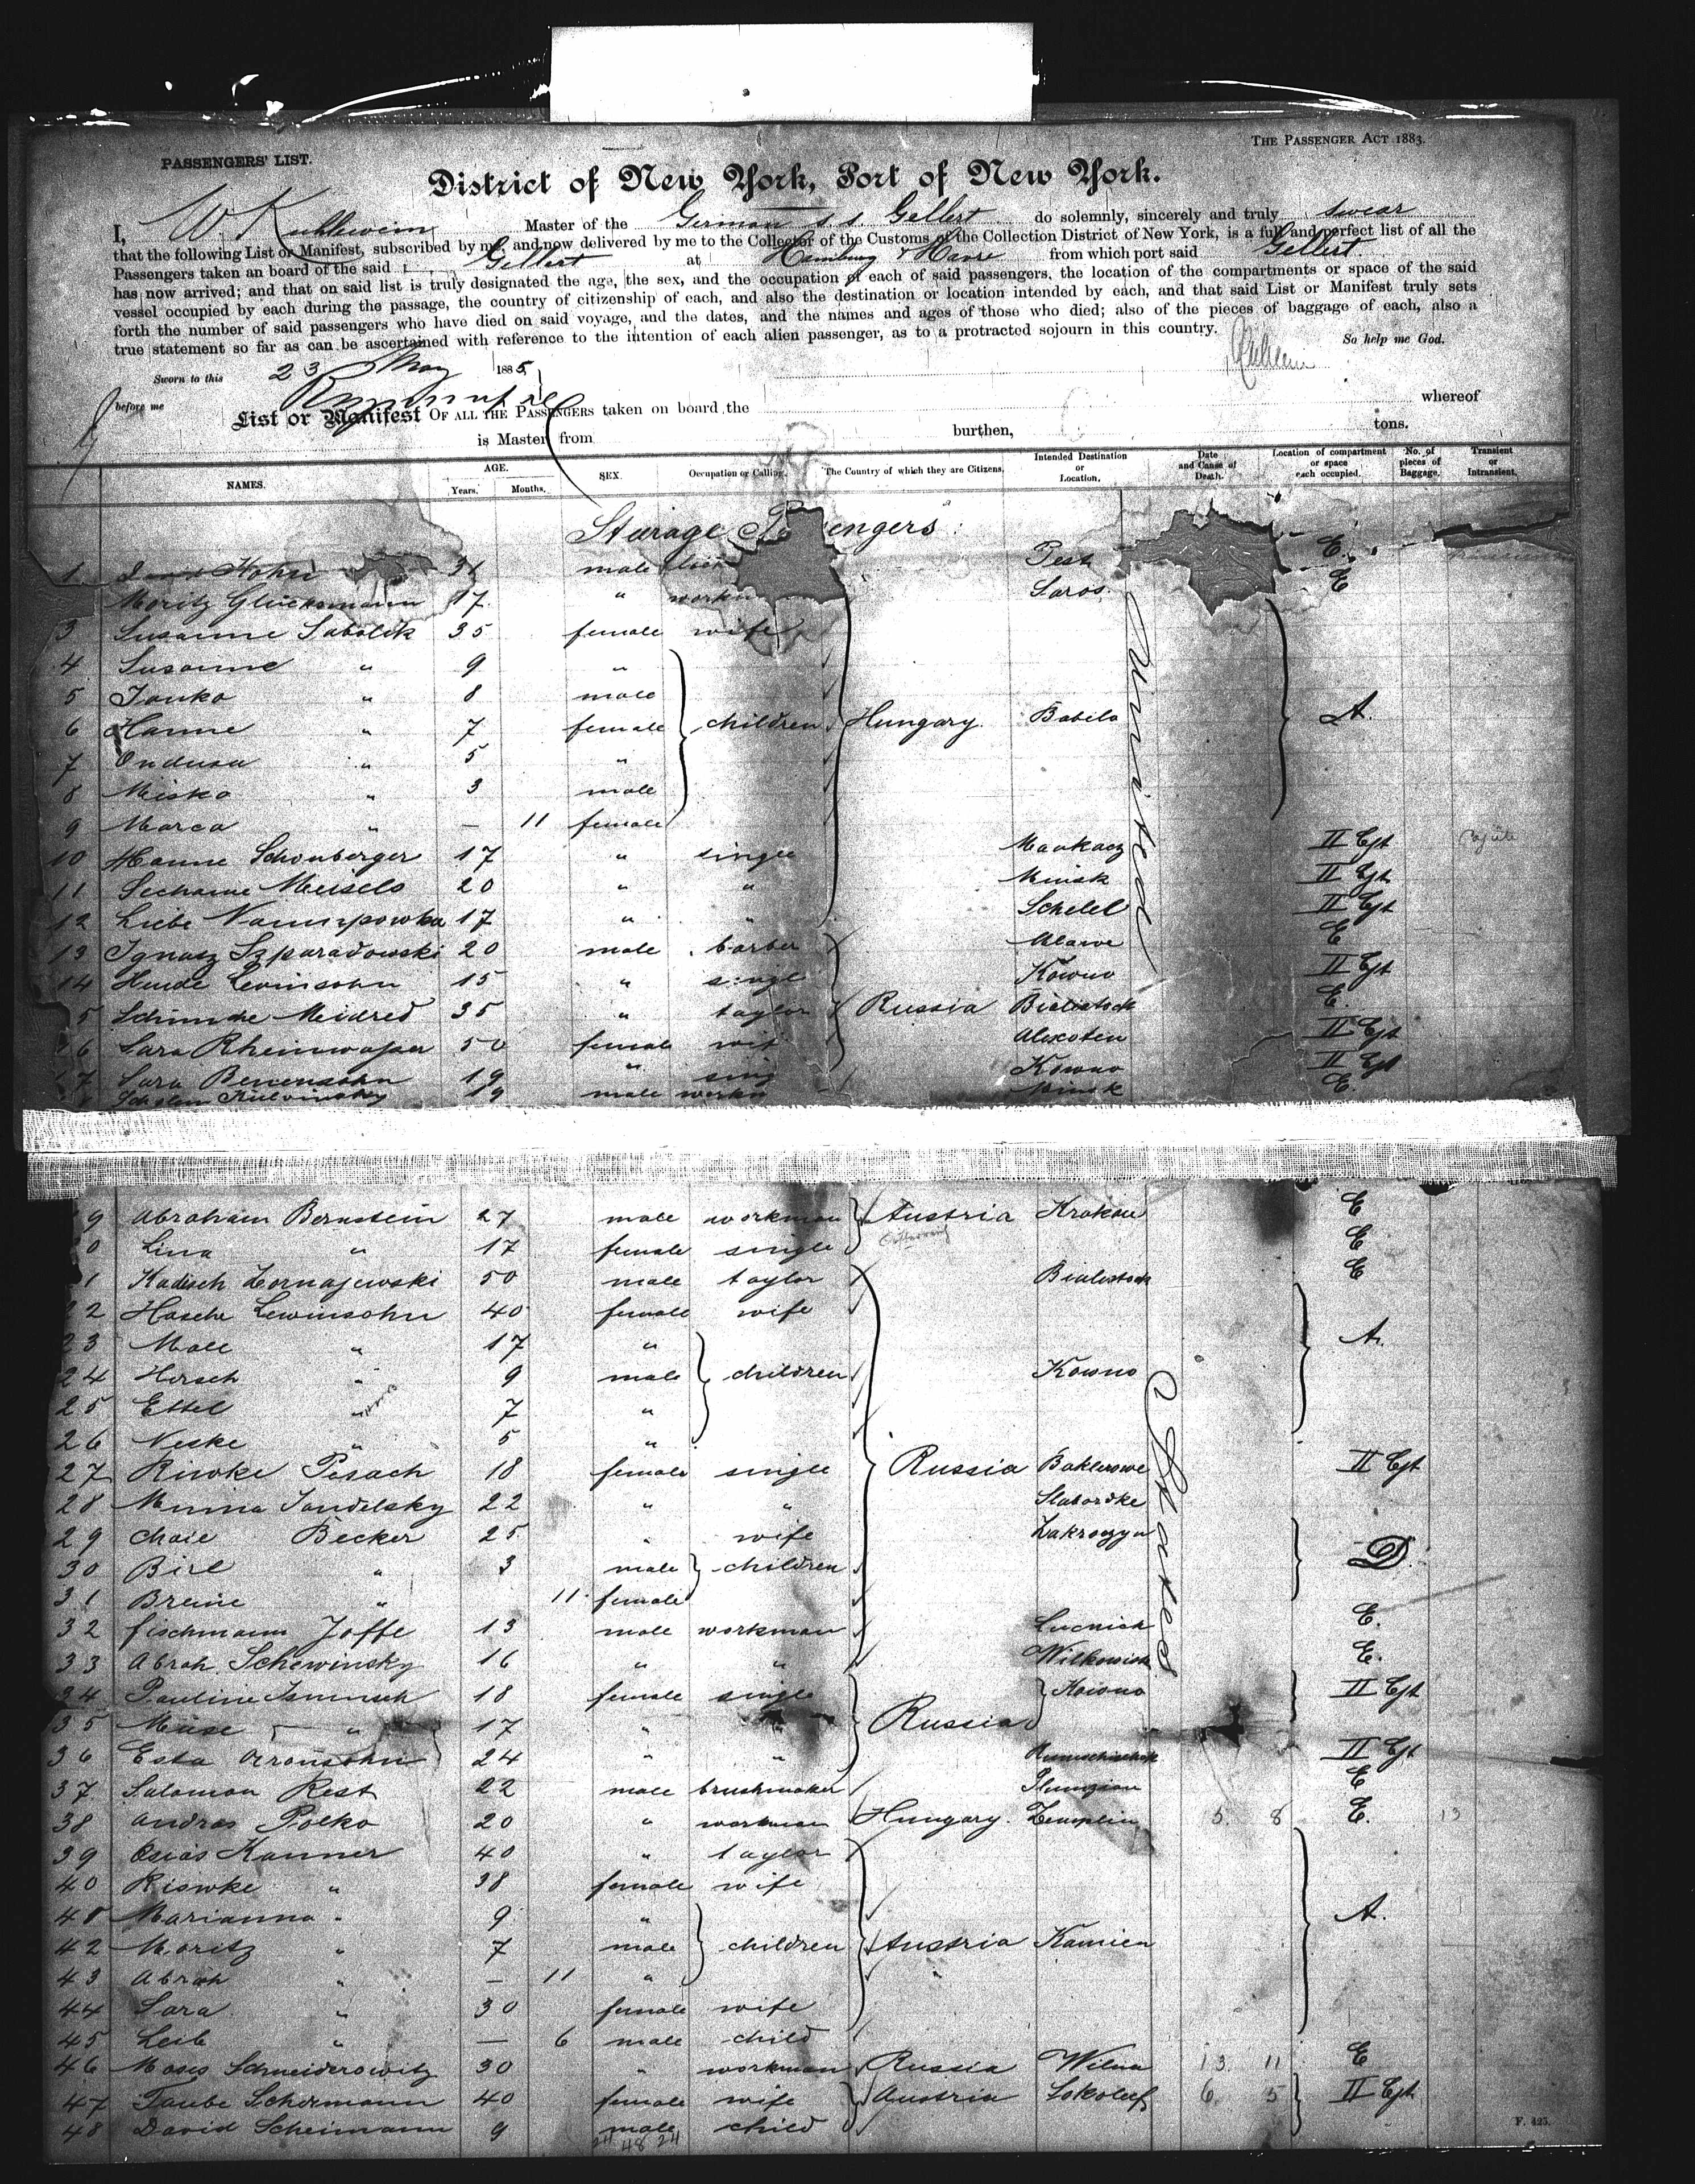 PASSENGERS' LIST.
THE PASSENGER ACT 1883.
District of New York, Port of New York.
I, W. Kuhlewein Master of the German s.s. Gellert do solemnly, sincerely and truly swear
that the following List or Manifest, subscribed by me, and now delivered by me to the Collector of the Customs of the Collection District of New York, is a full and perfect list of all the
Passengers taken an board of the said Gellert at Hamburg & Havre from which port said Gellert
has now arrived; and that on said list is truly designated the age, the sex, and the occupation of each of said passengers, the location of the compartments or space of the said
vessel occupied by each during the passage, the country of citizenship of each, and also the destination or location intended by each, and that said List or Manifest truly sets
forth the number of said passengers who have died on said voyage, and the dates, and the names and ages of those who died; also of the pieces of baggage of each, also a
true statement so far as can be ascertained with reference to the intention of each alien passenger, as to a protracted sojourn in this country. So help me God.
Sworn to this 23 May 1885
before me
List or Manifest OF ALL THE PASSENGERS taken on board the whereof
is Master, from burthen, tons.
NAMES. AGE. Years. Months. SEX. Occupation or Calling. The Country of which they are Citizens. Intended Destination or Location. Date and Cause of Death. Location of compartment or space each occupied. No. of pieces of Baggage. Transient or Intransient.
Sturage Pa engers:
1 Kohn 31 male Pest E.
Moritz Glücksmann 17 " workm Saros E
3 Susanne Sabolik 35 female wife
4 Susanne " 9 "
5 Janko " 8 male
6 Hanne " 7 female children Hungary. Babila A.
7 Ondusa " 5 "
8 Misko " 3 male
9 Marca " — 11 female
10 Hanne Schönberger 17 " single II Cjt
11 Meisels 20 " " Minsk II Cjt
12 Liebe 17 " " II Cjt
13 Ignasz Szparadowski 20 male barber Mlawe E
14 Hende Lewinsohn 15 " single Kowno II Cjt
5 Schimche Meidred 35 " taylor Russia Bialistock E.
16 Sara Rheinwasser 50 female wif Alexoten II Cjt
17 Sara Berensohn 19 " sing Kowno II Cjt
Scholem 19 male workm Minsk E.
United
9 Abraham Bernstein 27 male workman Austria Krakau E
0 Lina " 17 female single E
1 Kadisch Zornajewski 50 male taylor Bialostock E
22 Hasche Lewinsohn 40 female wife
23 Male " 17 " A.
24 Hirsch " 9 male children Kowno
25 Ettel " 7 "
26 Neske " 5 "
27 Riwke Pesach 18 female single Russia Baklerowe II Cjt
28 Minna Jandelsky 22 " " Slabordke
29 Chaie Becker 25 " wife Zakroczyn
30 Birl " 3 male children D.
31 Breine " 11 female
32 Fischmann Joffe 13 male workman E.
33 Abrah Schewinsky 16 " " Wilkowisk E.
34 Pauline 18 female single Kowno II Cjt
35 Müse " 17 " " Russia
36 Esta Aronsohn 24 " " II Cjt
37 Salomon Rest 22 male brushmaker Plungian E
38 Andras Polko 20 " workman Hungary. Zemplin 5. 8 E. 13
39 Osias Kanner 40 " taylor
40 Riswke " 38 female wife
41 Marianna " 9 " A.
42 Moritz " 7 male children Austria Kamien
43 Abrah " — 11 "
44 Sara " 30 female wife
45 Leib " — 6 male child
46 Moses Schneiderowitz 30 " workman Russia Wilna 13. 11 E
47 Taube Schermann 40 female wife Austria 6. 5 II Cjt
48 David Scheimann 9 male child
States
24 48 24
F. 425.